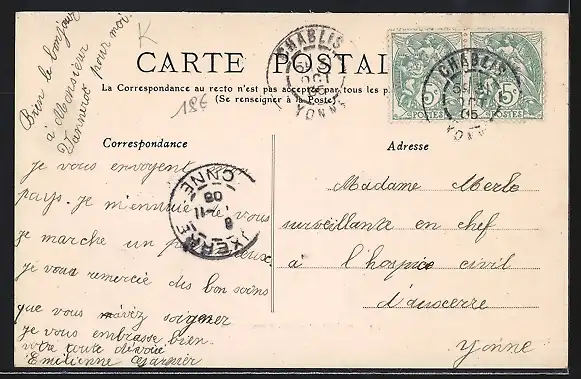 Bien le bonjour
à Monsieur
Vannerot pour moi.
K
CARTE POSTALE
La Correspondance au recto n'est pas acceptée par tous les p
(Se renseigner à la Poste)
18€
CHABLIS
OCT
05
YONNE
5c 5c
POSTES POSTES
CHABLIS
05
YONNE
Correspondance
Adresse
je vous envoyent
pays. je m'ennuie de vous
je marche un
je vous remercie des bon soins
que vous m'avez soigner
je vous embrasse bien.
votre toute dévoué
Emilienne
AUXERRE
YONNE
Madame Merlo
surveillante en chef
à l'hospice civil
d'auxerre
Yonne